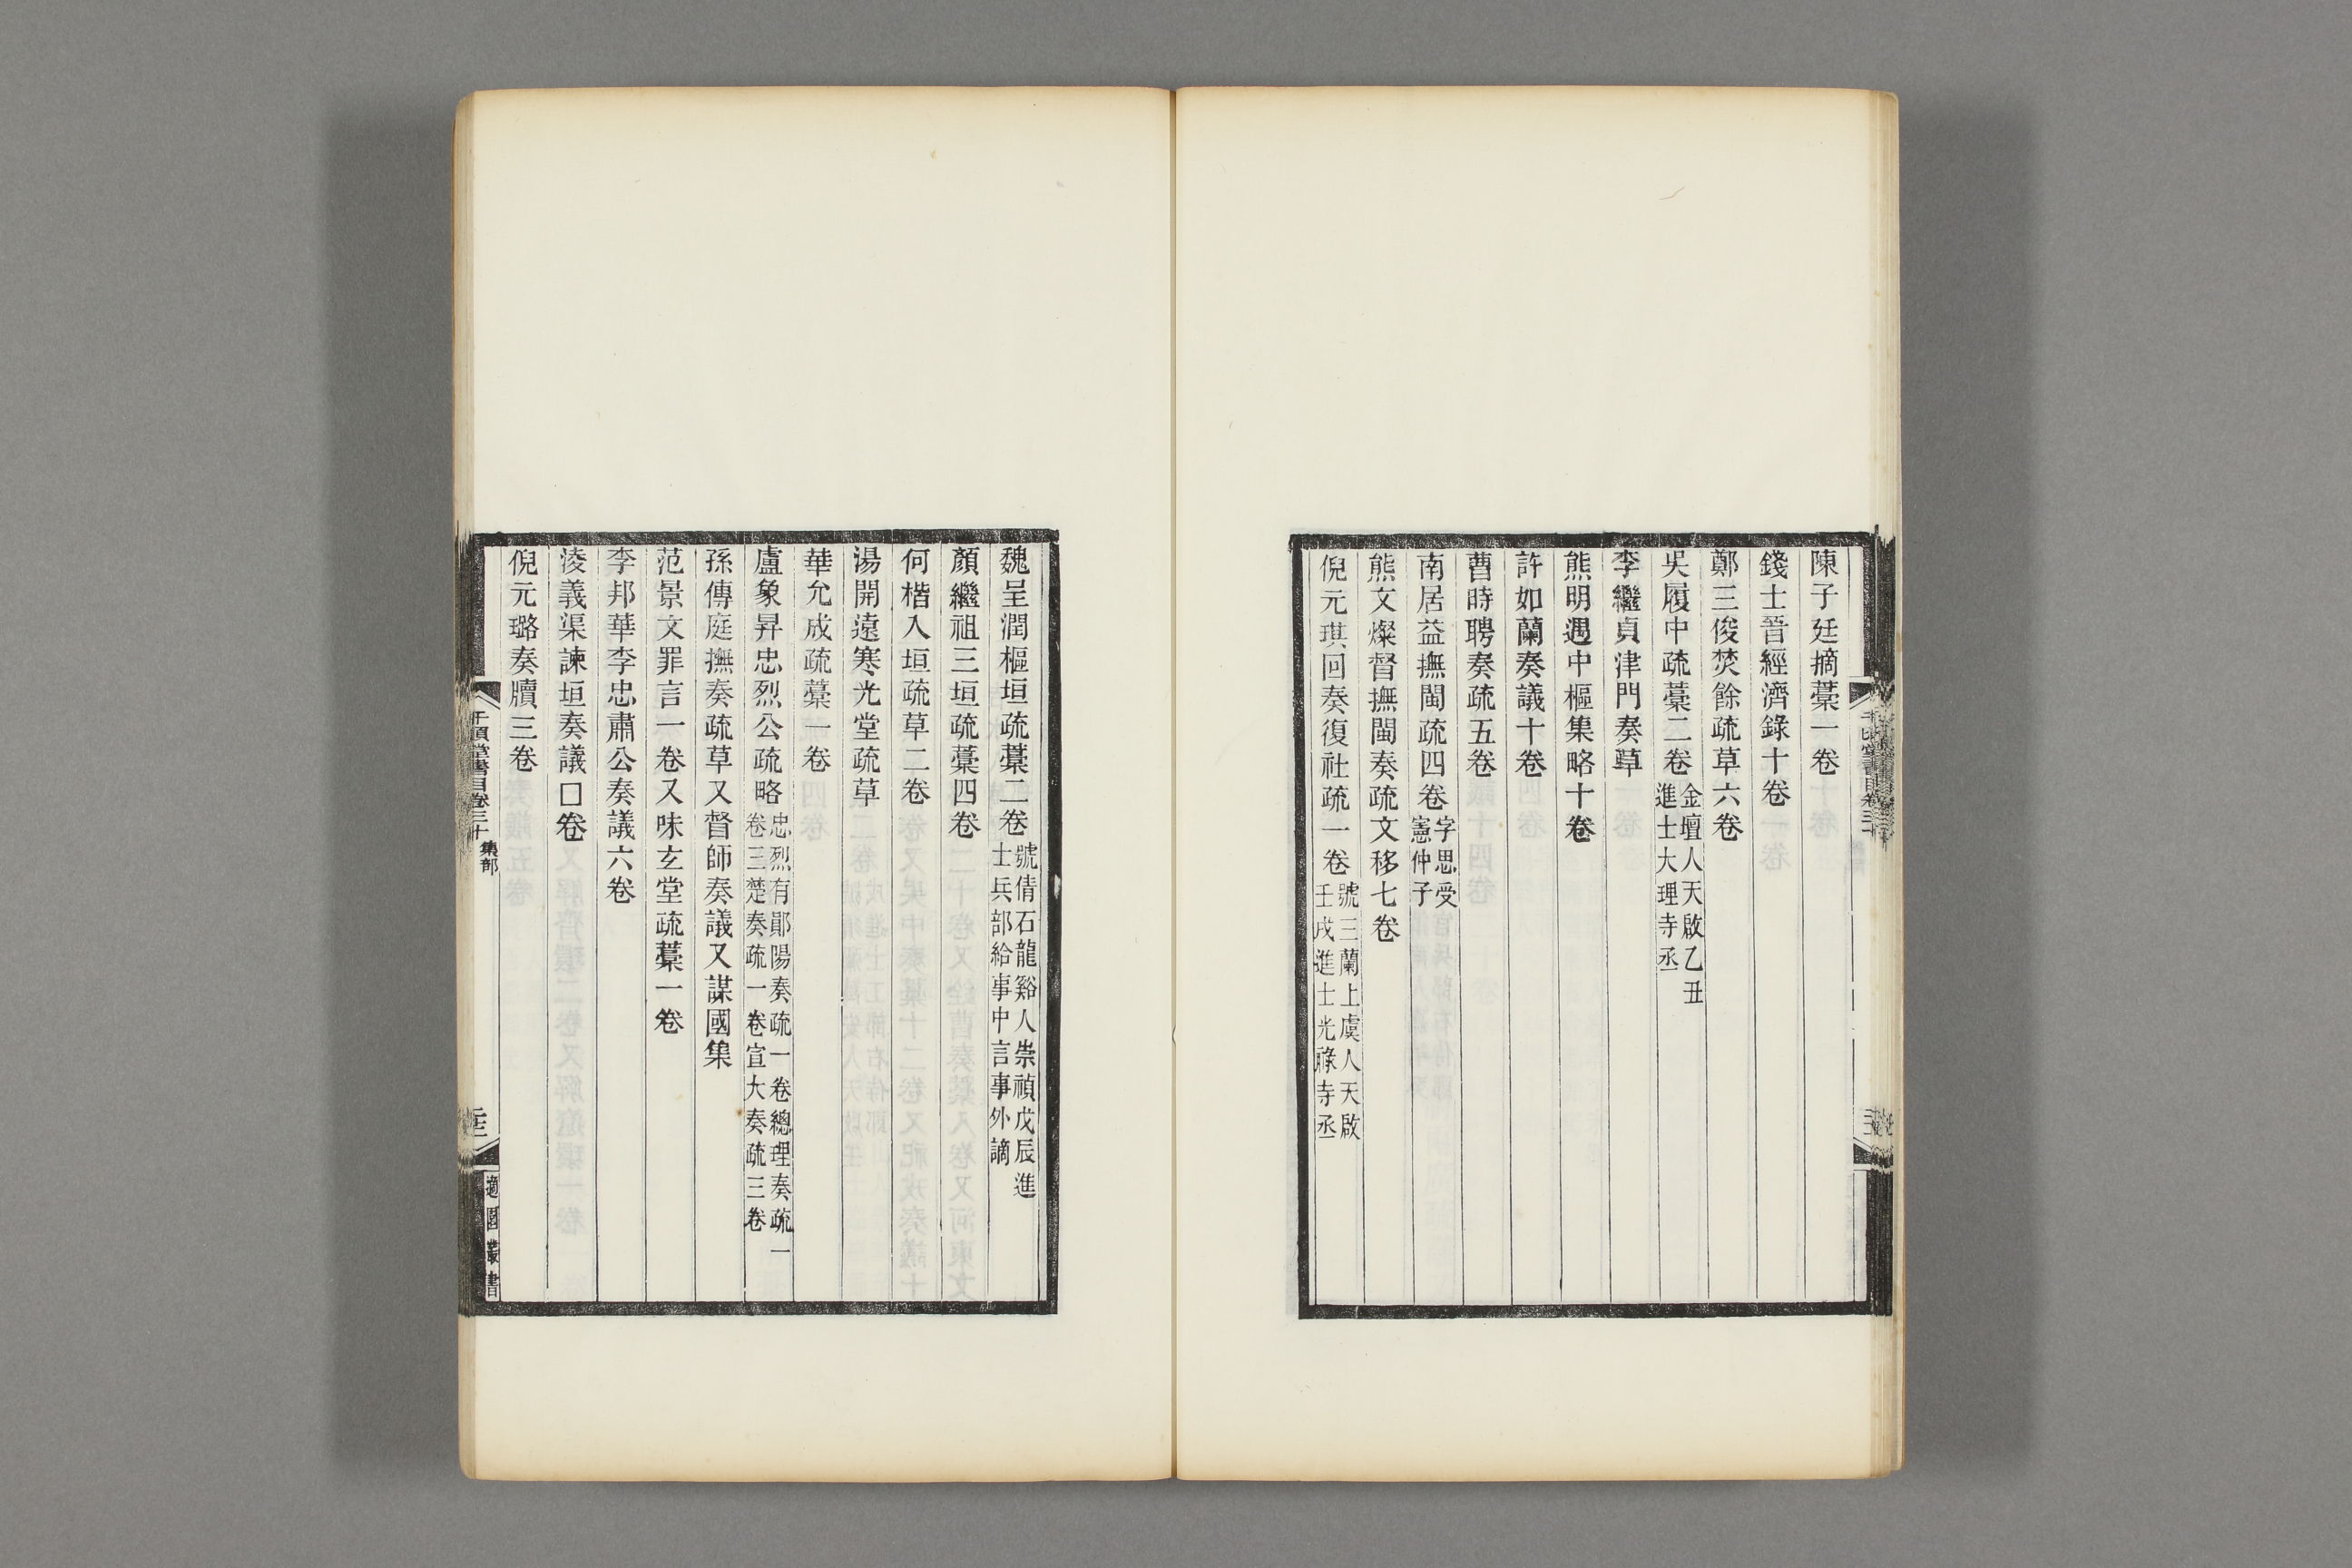 陳子廷摘藁一卷
錢士晉經濟錄十卷
鄭三俊焚餘疏草六卷
吳履中疏藁二卷金壇人天啟乙丑進士大理寺丞
李繼貞津門奏草
熊明遇中樞集略十卷
許如蘭奏議十卷
曹時聘奏疏五卷
南居益撫閩疏四卷字思受憲仲子
熊文燦督撫閩奏疏文移七卷
倪元珙回奏復社疏一卷號三蘭上虞人天啟壬戌進士光祿寺丞
魏呈潤樞垣疏藁二卷號倩石龍谿人崇禎戊辰進士兵部給事中言事外謫
顏繼祖三垣疏藁四卷
何楷入垣疏草二卷
湯開遠寒光堂疏草
華允成疏藁一卷
盧象昇忠烈公疏略忠烈有鄖陽奏疏一卷總理奏疏一卷三楚奏疏一卷宣大奏疏三卷
孫傳庭撫奏疏草又督師奏議又謀國集
范景文罪言一卷又味玄堂疏藁一卷
李邦華李忠肅公奏議六卷
淩義渠諫垣奏議囗卷
倪元璐奏牘三卷
千頃堂書目卷三十 集部
適園叢書